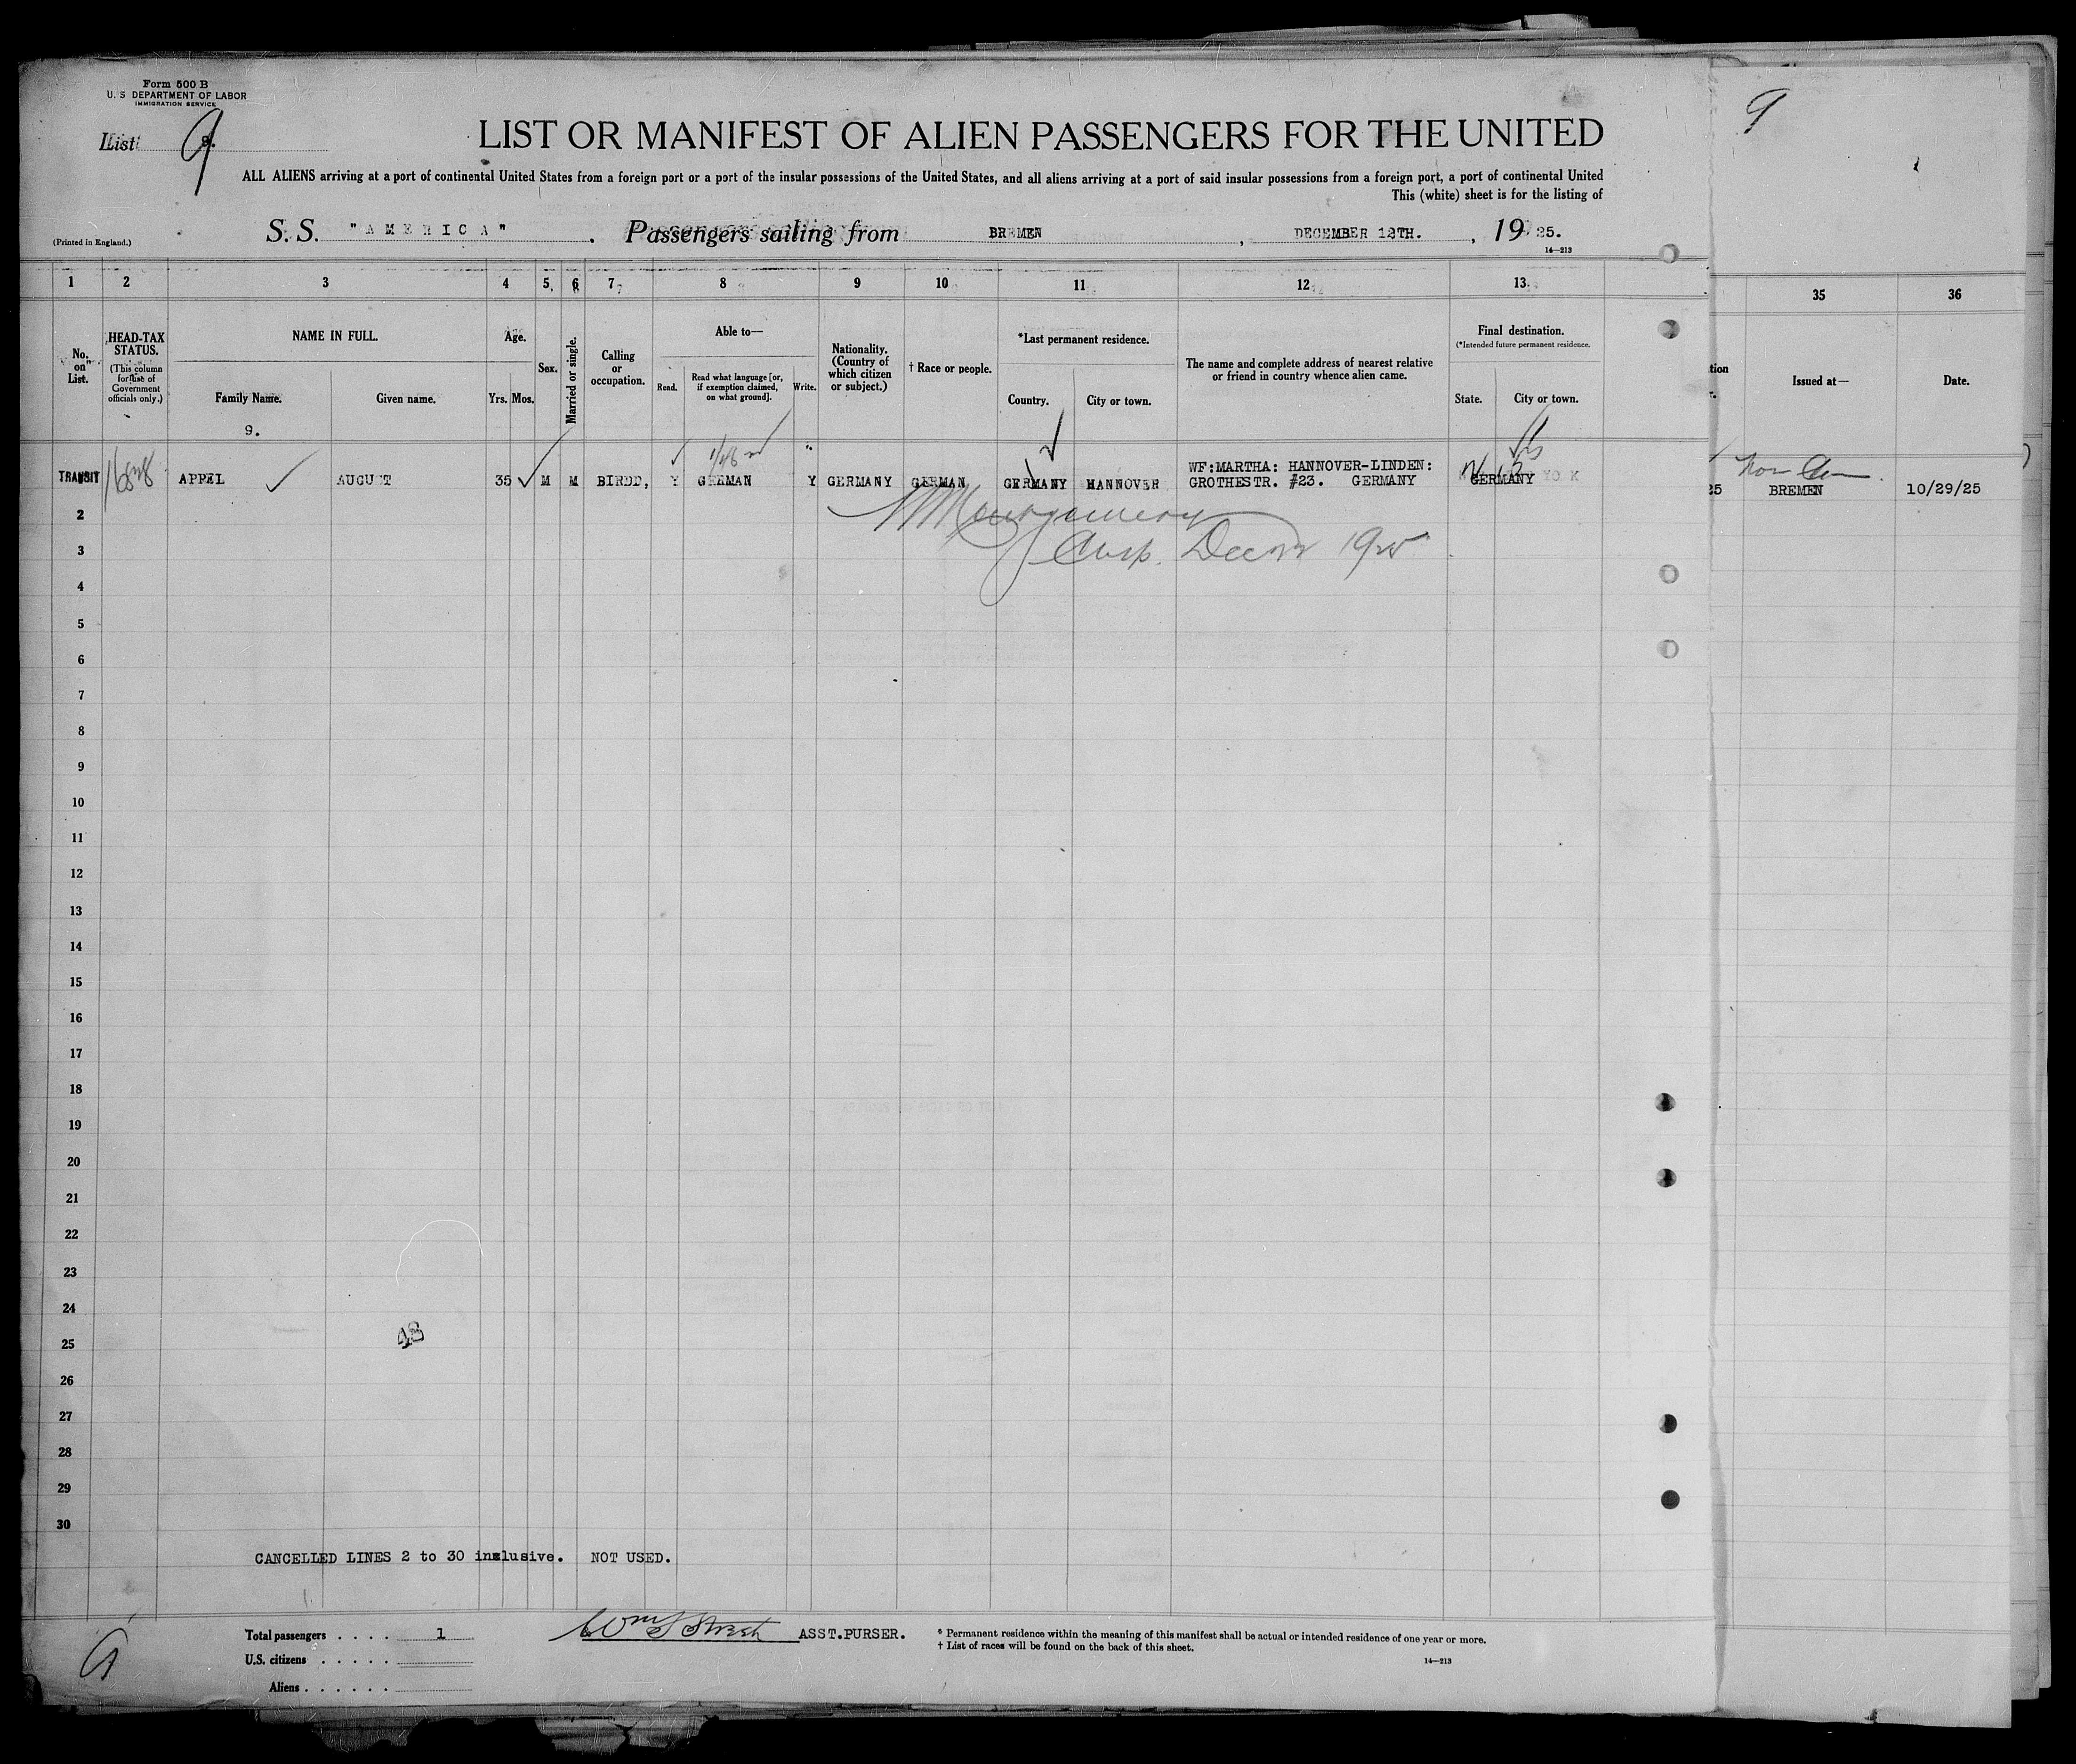 Form 500 B
U. S. DEPARTMENT OF LABOR
IMMIGRATION SERVICE
List 9
9
LIST OR MANIFEST OF ALIEN PASSENGERS FOR THE UNITED
ALL ALIENS arriving at a port of continental United States from a foreign port or a port of the insular possessions of the United States, and all aliens arriving at a port of said insular possessions from a foreign port, a port of continental United
This (white) sheet is for the listing of
(Printed in England.)
S. S. "AMERICA" . Passengers sailing from BREMEN , DECEMBER 12TH. , 1925.
14—213
1 2 3 4 5 6 7 8 9 10 11 12 13 35 36
No. on List.
HEAD-TAX STATUS.
(This column for use of Government officials only.)
NAME IN FULL.
Family Name.
Given name.
9.
Age.
Yrs. Mos.
Sex.
Married or single.
Calling or occupation.
Able to—
Read.
Read what language [or, if exemption claimed, on what ground].
Write.
Nationality. (Country of which citizen or subject.)
† Race or people.
*Last permanent residence.
Country.
City or town.
The name and complete address of nearest relative or friend in country whence alien came.
Final destination.
(*Intended future permanent residence.
State.
City or town.
Issued at—
Date.
TRANSIT APPEL AUGUST 35 M M BIRDD, Y GERMAN Y GERMANY GERMAN GERMANY HANNOVER WF:MARTHA: HANNOVER-LINDEN: GROTHESTR. #23. GERMANY GERMANY 25 BREMEN 10/29/25
Montgomery
1925
2
3
4
5
6
7
8
9
10
11
12
13
14
15
16
17
18
19
20
21
22
23
24
48
25
26
27
28
29
30
CANCELLED LINES 2 to 30 inclusive. NOT USED.
Total passengers . . . . 1
U.S. citizens . . . . .
Aliens . . . . . .
9
ASST.PURSER.
* Permanent residence within the meaning of this manifest shall be actual or intended residence of one year or more.
† List of races will be found on the back of this sheet.
14—213